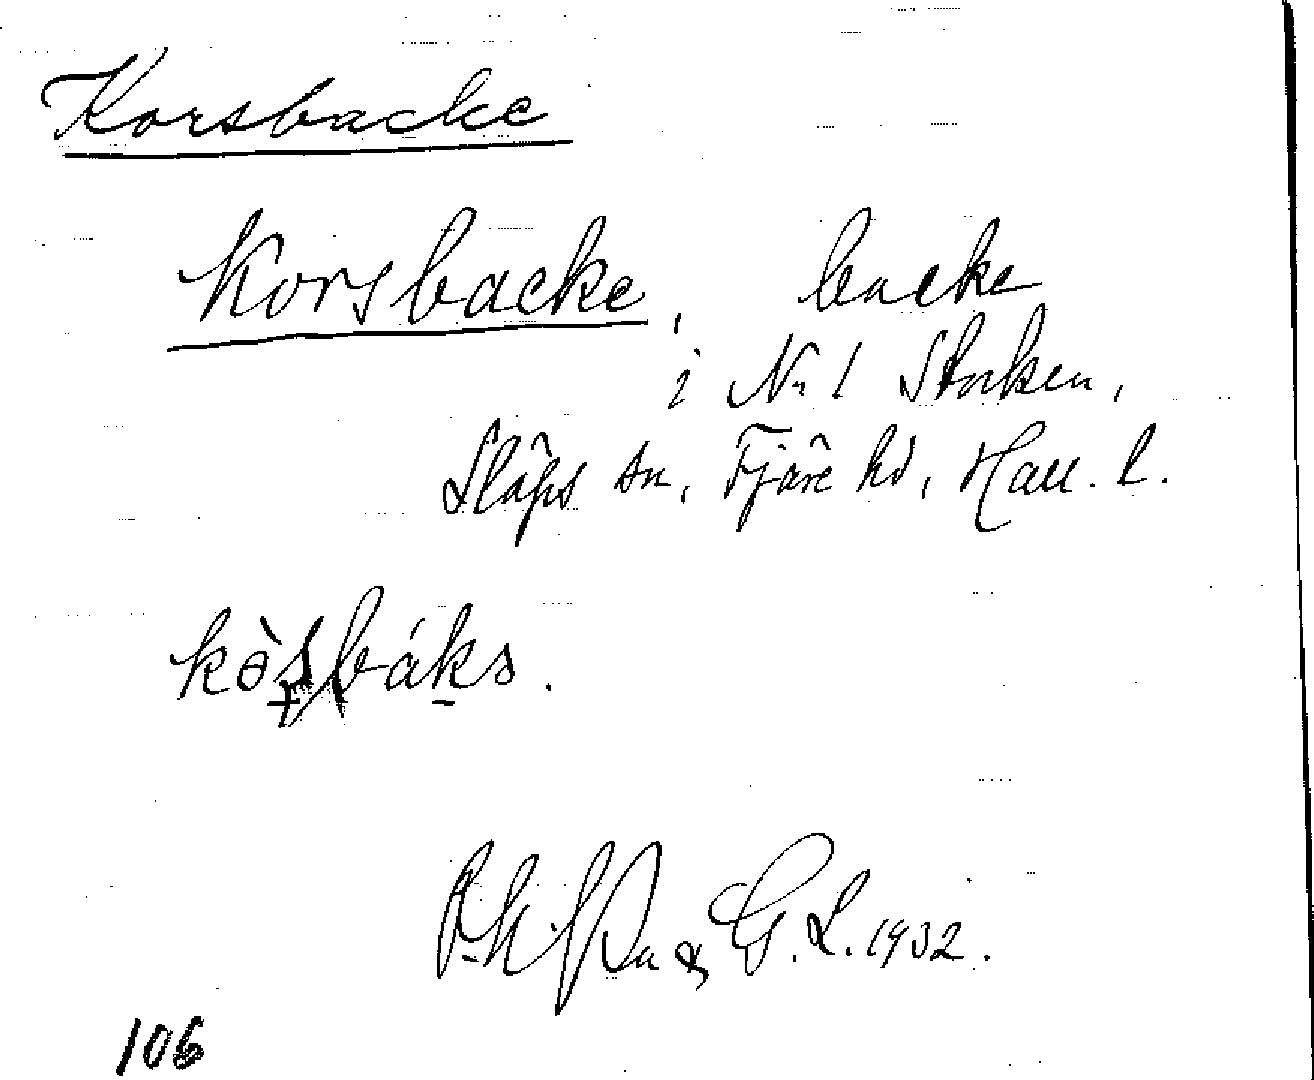 Korsbacke
Korsbacke, backe
i N:1 Stocken,
Släps sn, Fjäre hd, Hall. l.
G. L. 1932.
106